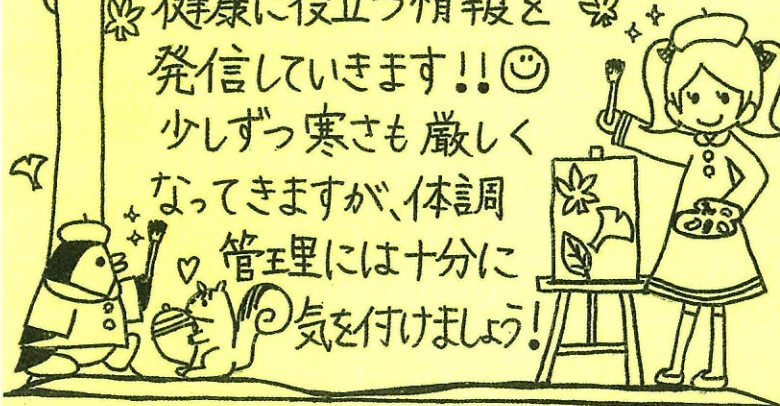 健康に役立つ情報を
発信していきます!!
少しずつ寒さも厳しく
なってきますが、体調
管理には十分に
気を付けましょう!